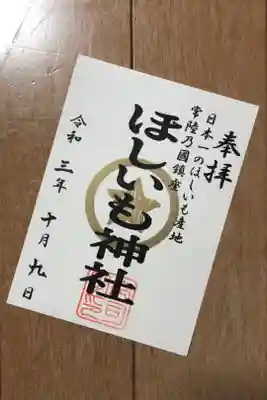 奉拝
日本一のほしいも産地
常陸乃國鎮座
ほしいも神社
令和三年十月九日